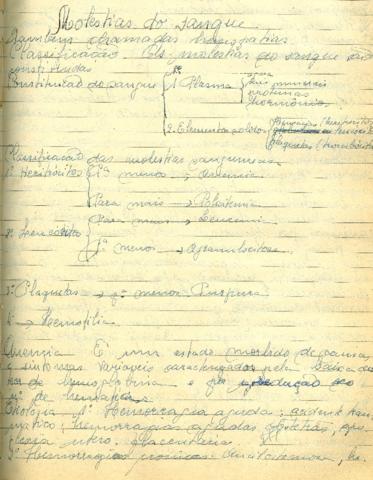 Molestias do sangue
Tambem chamadas hemopatias
Classificação Os molestias do sangue são
constituidas
Constituição do sangue 1 Plasma agua sais minerais proteinas hormônios
2. Elementos solidos (hemacias) plaquetas
Classificação das molestias sanguineas
1º Heritrócitos Pª menos → anemia
Para mais → Poliitemia
2º Leucócito Para mais → Leucemi
Pª menos → Agranulocitose
3º Plaquetas → pª menos Purpura
4º → Hemofilia
Anemia É um estado morbido de causas
e sintomas variaveis caracterizados pela baixa da
de hemoglobina e redução no
nº de hemacias
Etiologia 1º Hemorragia aguda; acidente trau
matico; hemorragias agudas
utero. placentaria.
2º Hemorragias cronicas